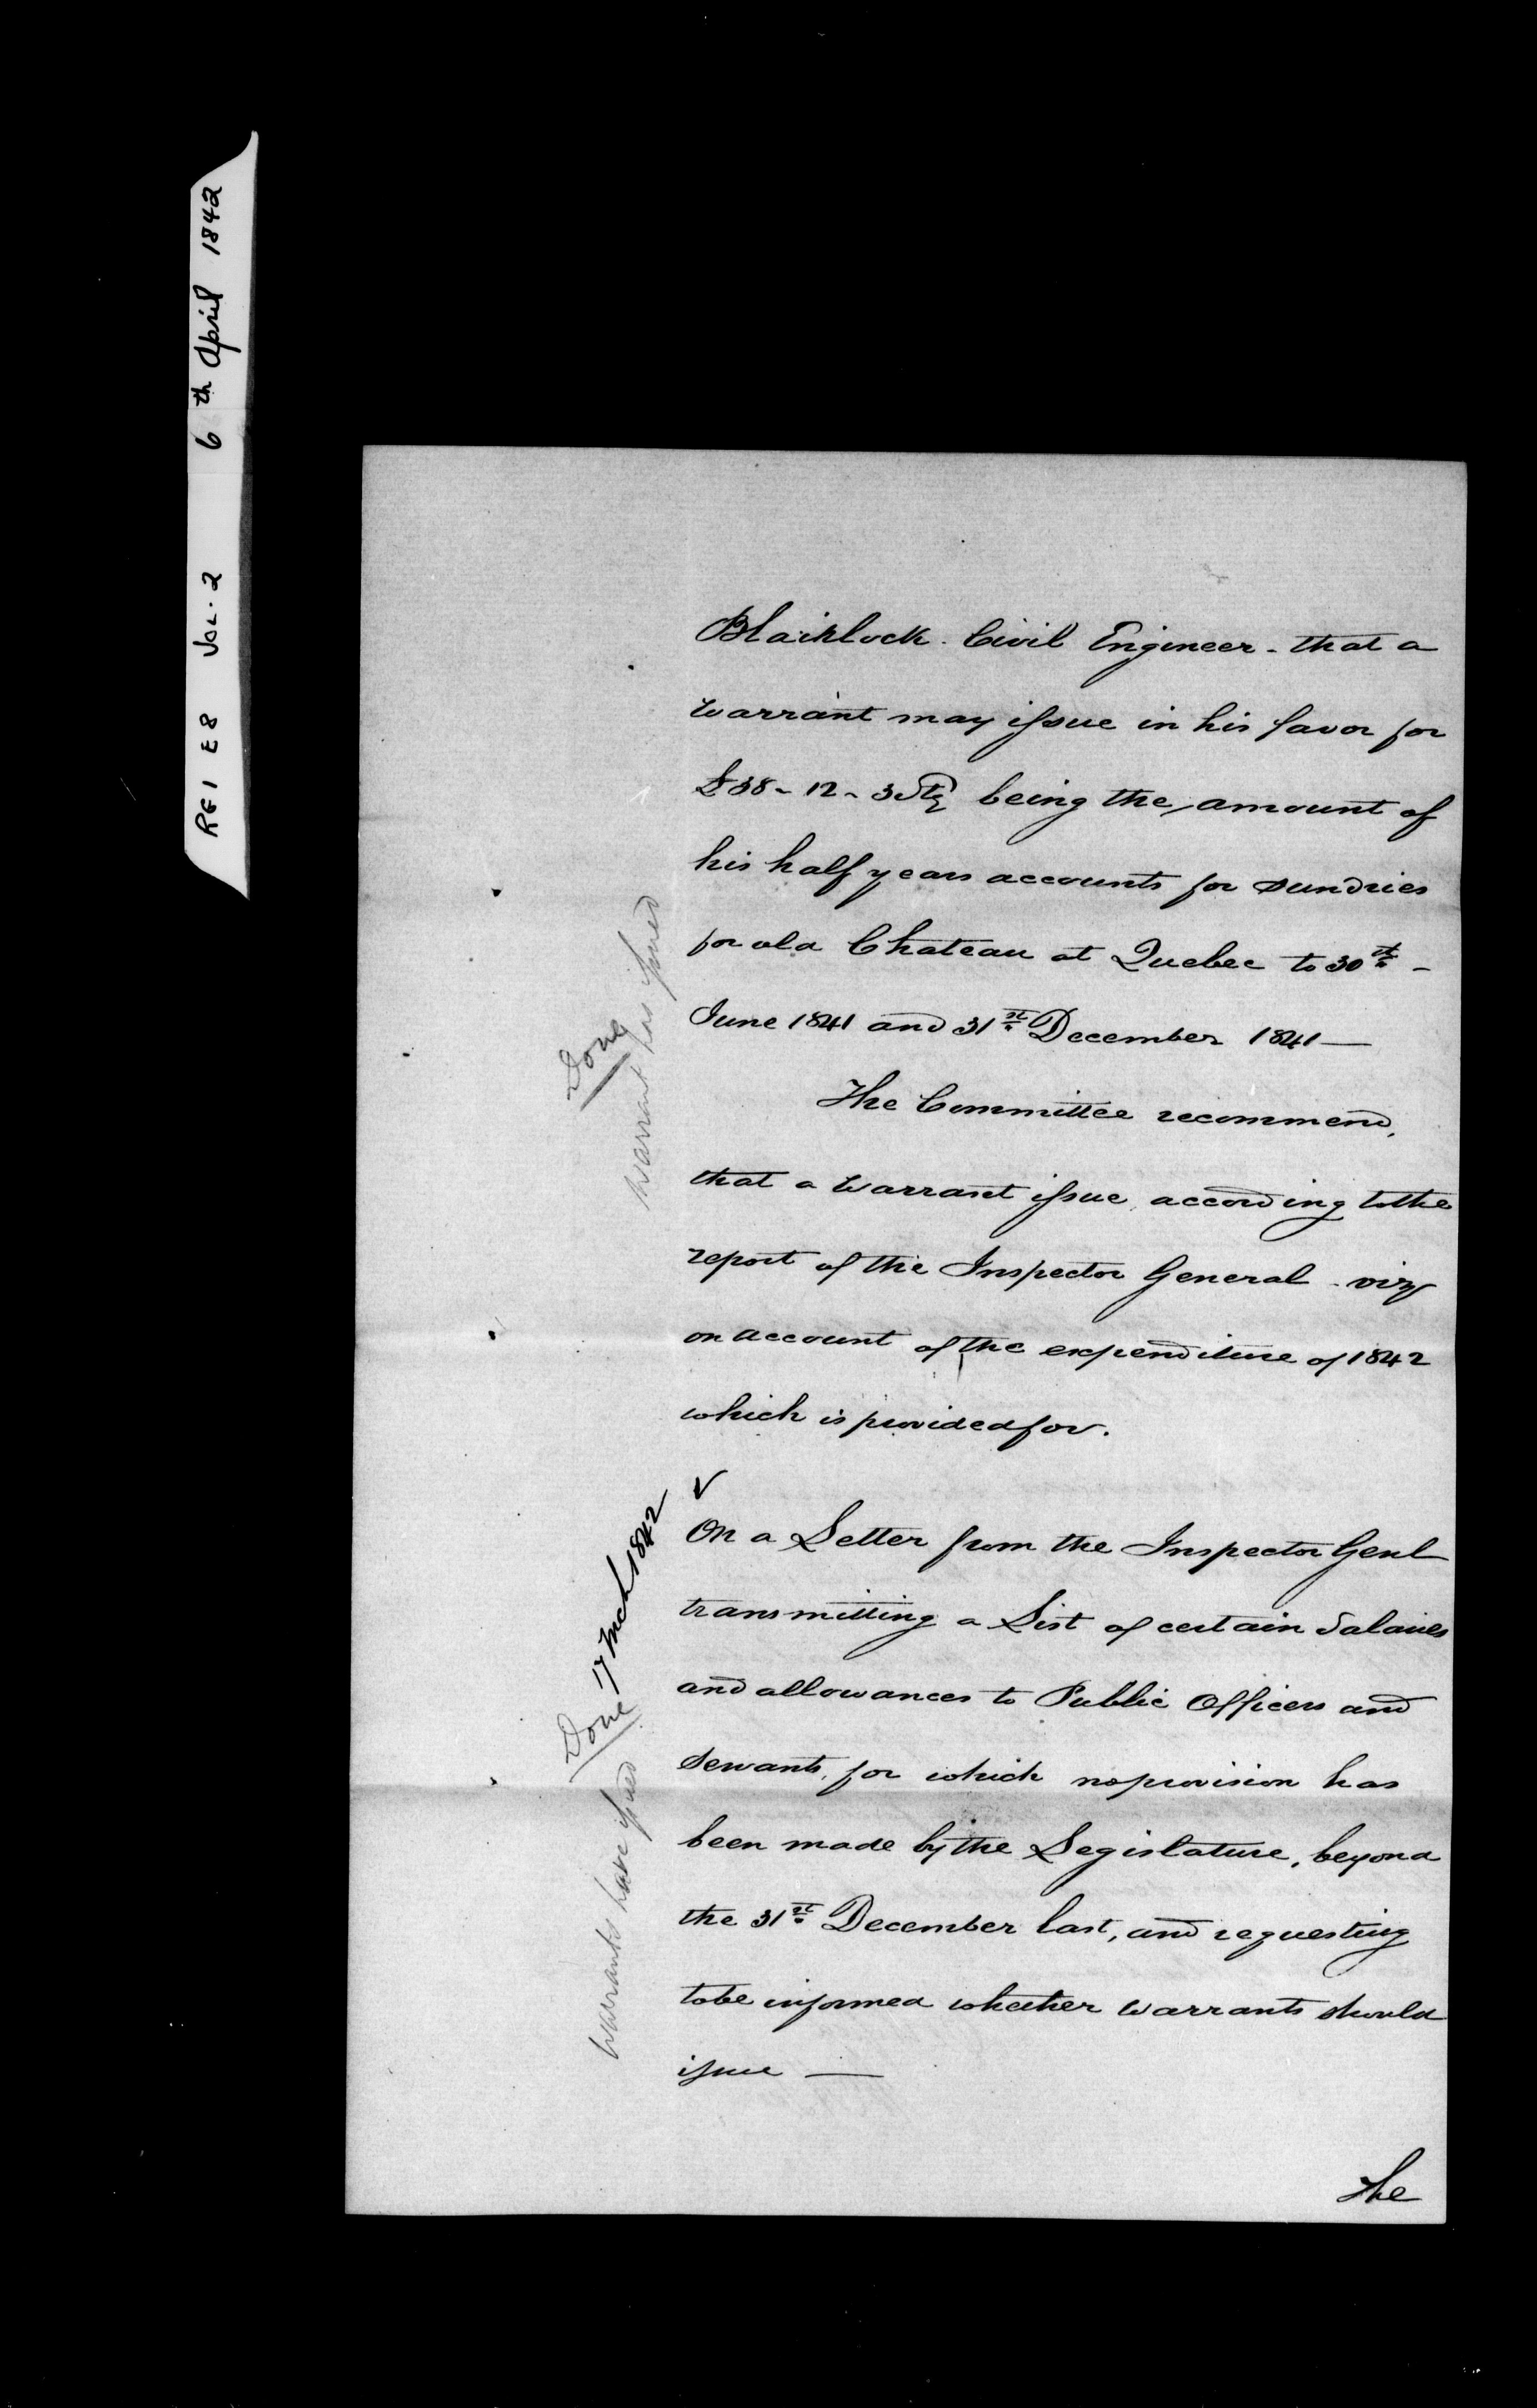 RG1 E8 Vol. 2 6th April 1842
Blaiklock. Civil Engineer - that a
warrant may issue in his favor for
£38 - 12 - 3 Stg being the amount of
his half years accounts for sundries
for old Chateau at Quebec to 30th -
June 1841 and 31st December 1841 —
The Committee recommend,
that a warrant issue, according to the
report of the Inspector General - viz
on account of the expenditure of 1842
which is provided for.
Done
Warrant has issued
✓
On a Letter from the Inspector Genl
transmitting a List of certain Salaries
and allowances to Public Officers and
Servants, for which no provision has
been made by the Legislature, beyond
the 31st December last, and requesting
to be informed whether warrants should
issue —
Done 17 Mch 1842
Warrants have issued
The